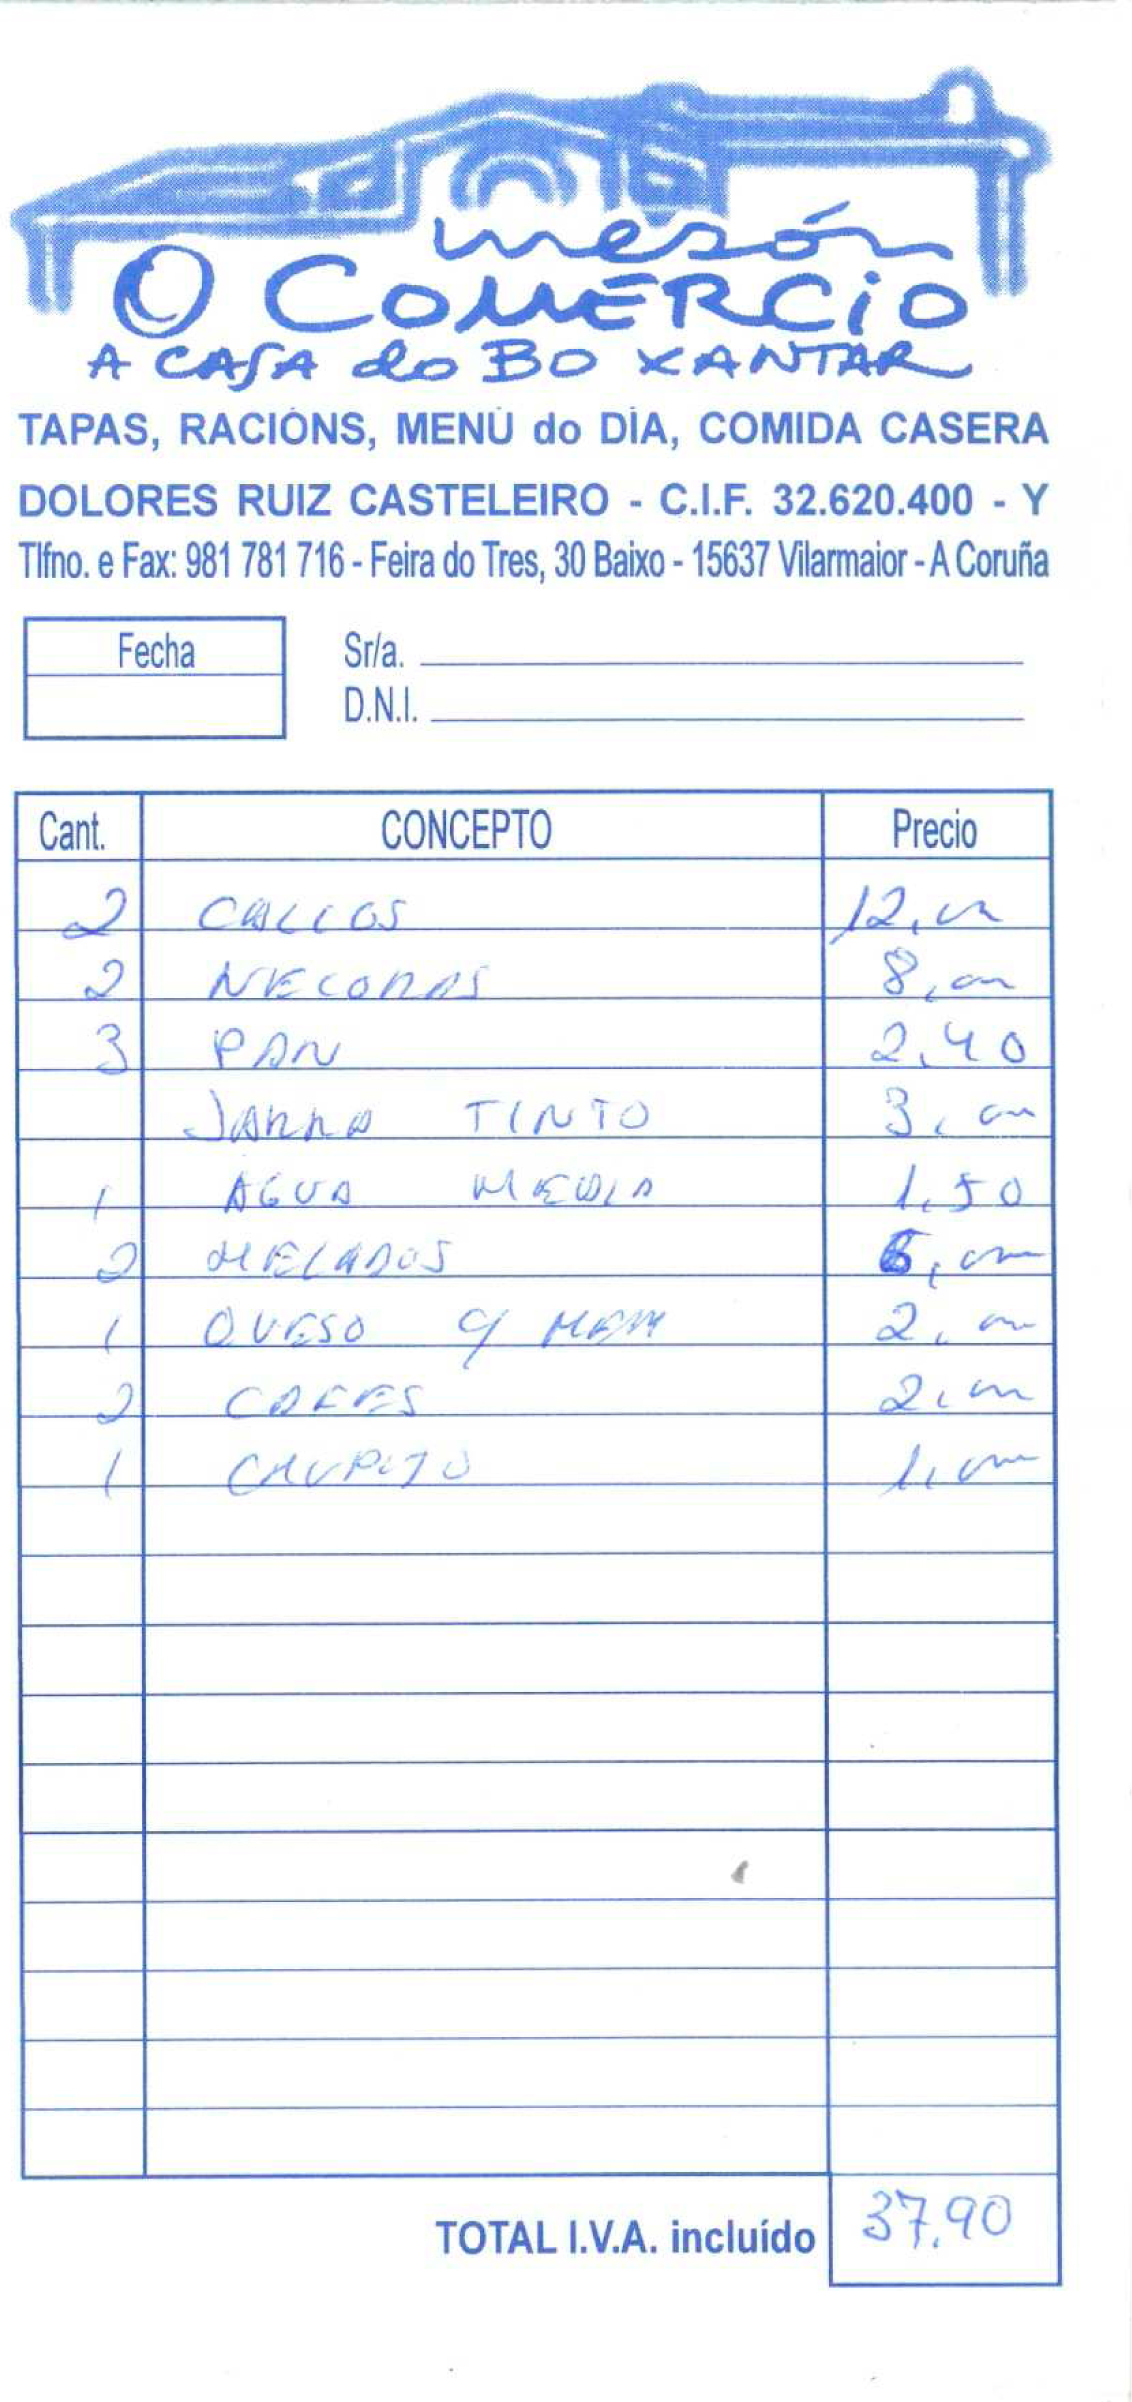 mesón
O COMERCIO
A CASA do BO XANTAR
TAPAS, RACIÓNS, MENÚ do DÍA, COMIDA CASERA
DOLORES RUIZ CASTELEIRO - C.I.F. 32.620.400 - Y
Tlfno. e Fax: 981 781 716 - Feira do Tres, 30 Baixo - 15637 Vilarmaior - A Coruña
Fecha Sr/a.
D.N.I.
Cant. CONCEPTO Precio
2 CALLOS 12,00
2 NECORAS 8,00
3 PAN 2,40
JARRA TINTO 3,00
1 AGUA MEDIA 1,50
2 HELADOS 6,00
1 QUESO C/ MEM 2,00
2 CAFES 2,00
1 CHUPITO 1,00
TOTAL I.V.A. incluído 37,90